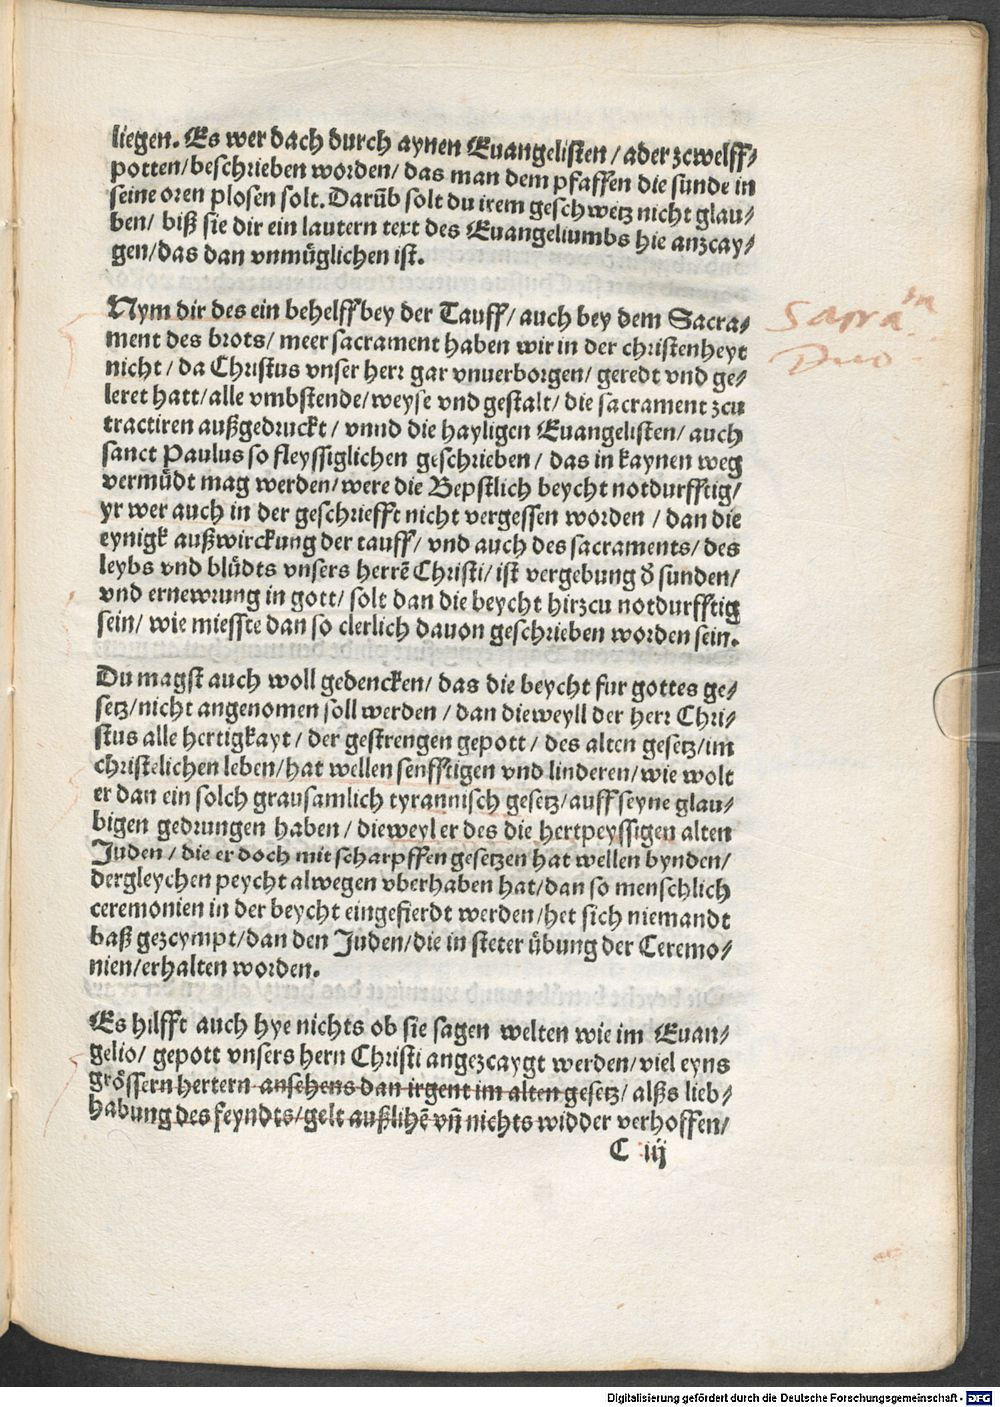 liegen. Es wer dach durch aynen Euangelisten / ader zcwelff⸗
potten/ beschrieben worden/ das man dem pfaffen die sunde in
seine oren plosen solt. Darūb solt du irem geschwetz nicht glau⸗
ben/ biß sie dir ein lautern text des Euangeliumbs hie anzcay⸗
gen/ das dan vnmüglichen ist.
Nym dir des ein behelff bey der Tauff/ auch bey dem Sacra⸗
ment des brots/ meer sacrament haben wir in der christenheyt
nicht / da Christus vnser herr gar vnuerborgen/ geredt vnd ge⸗
leret hatt/ alle vmbstende/ weyse vnd gestalt/ die sacrament zcu
tractiren außgedruckt / vnnd die hayligen Euangelisten/ auch
sanct Paulus so fleyssiglichen geschrieben / das in kaynen weg
vermüdt mag werden/ were die Bepstlich beycht notdurfftig/
yr wer auch in der geschriefft nicht vergessen worden / dan die
eynigk außwirckung der tauff/ vnd auch des sacraments/ des
leybs vnd blüdts vnsers herrē Christi/ ist vergebung δ sunden/
vnd ernewrung in gott/ solt dan die beycht hirzcu notdurfftig
sein/ wie miesste dan so clerlich dauon geschrieben worden sein.
Sacra in
Duo
Du magst auch woll gedencken/ das die beycht fur gottes ge⸗
setz/ nicht angenomen soll werden / dan dieweyll der herr Chri⸗
stus alle hertigkayt / der gestrengen gepott / des alten gesetz/ im
christelichen leben/ hat wellen senfftigen vnd linderen/ wie wolt
er dan ein solch grausamlich tyrannisch gesetz/ auff seyne glau⸗
bigen gedrungen haben / dieweyl er des die hertpeyssigen alten
Juden / die er doch mit scharpffen gesetzen hat wellen bynden/
dergleychen peycht alwegen vberhaben hat/ dan so menschlich
ceremonien in der beycht eingefierdt werden/ het sich niemandt
baß gezcympt/ dan den Juden/ die in steter übung der Ceremo⸗
nien/ erhalten worden.
Es hilfft auch hye nichts ob sie sagen welten wie im Euan⸗
gelio/ gepott vnsers hern Christi angezcaygt werden/ viel eyns
grössern hertern ansehens dan irgent im alten gesetz/ alßs lieb⸗
habung des feyndts/ gelt außlihē vñ nichts widder verhoffen/
C iij
Digitalisierung gefördert durch die Deutsche Forschungsgemeinschaft - DFG